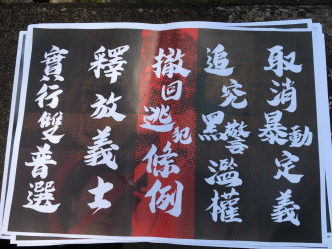 取消暴動定義
追究黑警濫權
撤回逃犯條例
釋放義士
實行雙普選